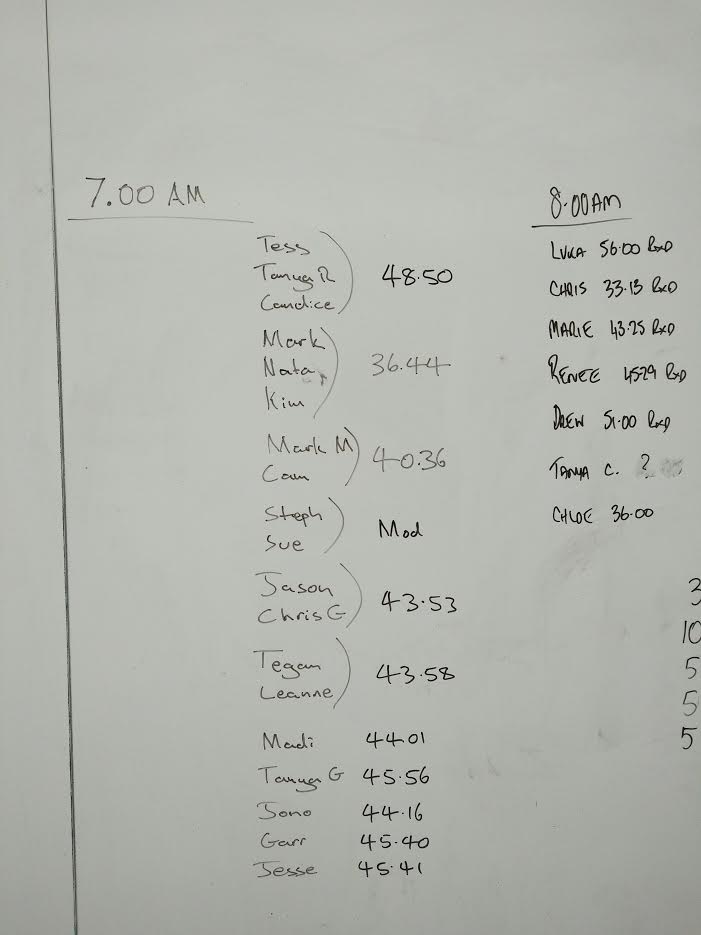 7.00 AM
Tess
Tanya R
Candice
48.50
Mark
Nata
Kim
36.44
Mark M
Cam
40.36
Steph
Sue
Mod
Jason
Chris G
43.53
Tegan
Leanne
43.58
Madi 44.01
Tanya G 45.56
Jono 44.16
Garr 45.40
Jesse 45.41
8.00AM
LUKA 56.00 RxD
CHRIS 33.13 RxD
MARIE 43.25 RxD
RENEE 45.29 RxD
DREW 51.00 RxD
TANYA C. ?
CHLOE 36.00
3
10
5
5
5